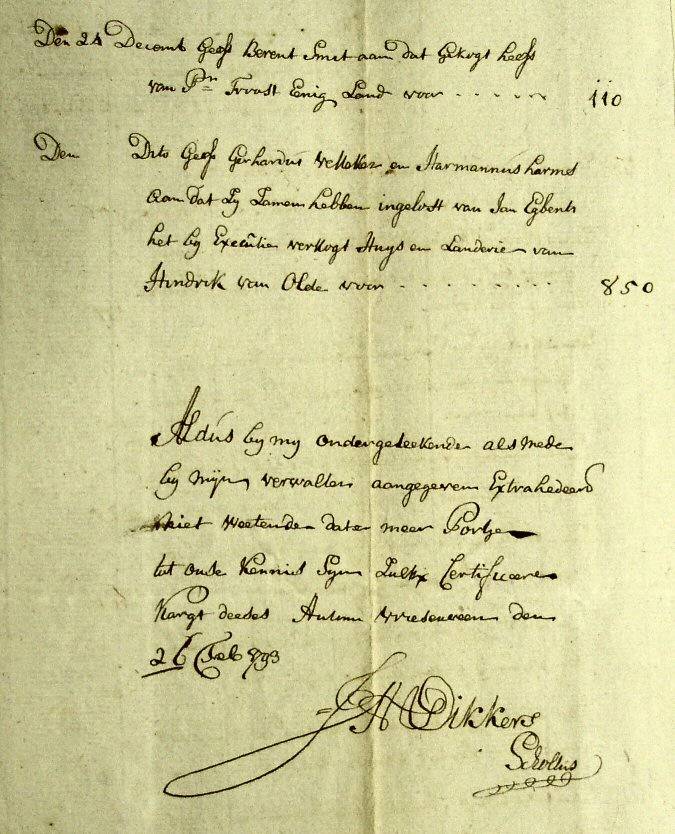 Den 24 Decemb Geeft Berent Smit aan dat Gekogt heeft
van Pr Troost Enig Land voor - - - - - - 110
Den Dito Geeft Gerhardus en Harmannus harmes
aan dat Zy Zamen hebben ingelost van Jan Egberts
het by Executie verkogt Huys en Landerie van
Hindrik van Olde voor - - - - - - - - - 850
Aldus by my ondergeteekende als mede
by mijn verwalter aangegeven Extraheeerd
Niet weetende dat er meer
tot onse Kennis Syn Zulkx Certificere
Kragt deeses Actum vriesenveen den
26 Feb 793
JH Dikkers
Scholtus